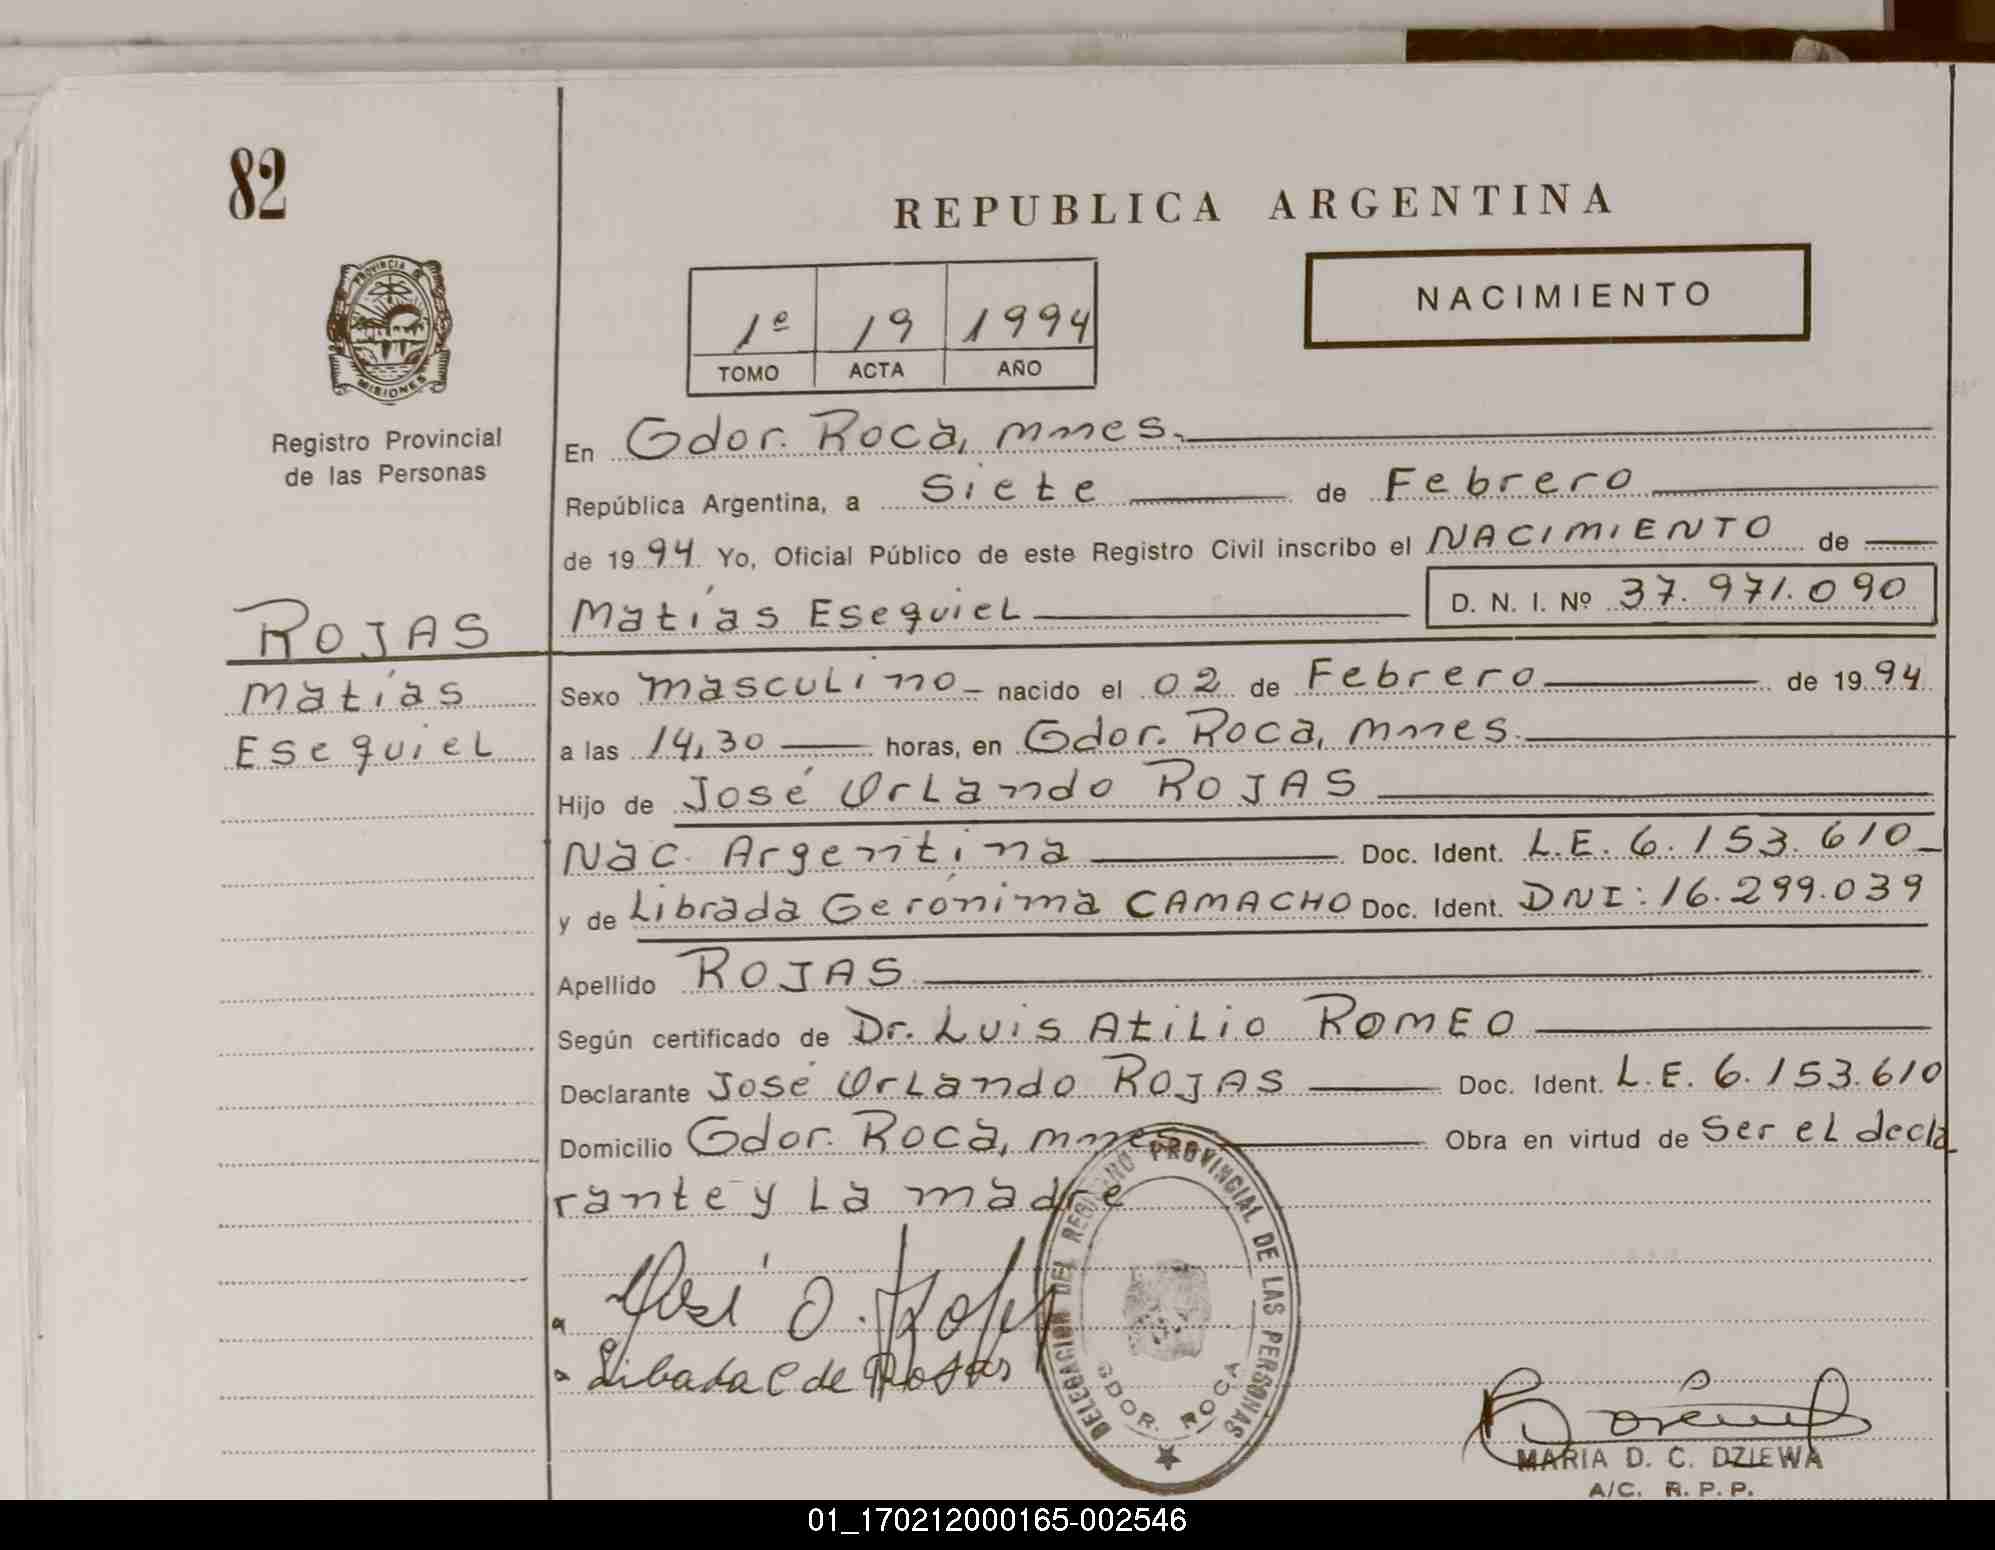 82
REPUBLICA ARGENTINA
PROVINCIA DE
MISIONES
Registro Provincial
de las Personas
1º 19 1994
TOMO ACTA AÑO
NACIMIENTO
En Gdor. Roca, mnes.
República Argentina, a Siete de Febrero
de 1994. Yo, Oficial Público de este Registro Civil inscribo el NACIMIENTO de
Matías Esequiel D. N. I. Nº 37.971.090
ROJAS
Matías
Esequiel
Sexo masculino nacido el 02 de Febrero de 1994
a las 14,30 horas, en Gdor. Roca, mnes.
Hijo de José Orlando ROJAS
Nac. Argentina Doc. Ident. L.E. 6.153.610
y de Librada Gerónima CAMACHO Doc. Ident. DNI: 16.299.039
Apellido ROJAS
Según certificado de Dr. Luis Atilio ROMEO
Declarante José Orlando ROJAS Doc. Ident. L.E. 6.153.610
Domicilio Gdor. Roca, mnes Obra en virtud de Ser el decla
rante y la madre
José O. Rojas
Libada C de Rojas
DELEGACION DEL REGISTRO PROVINCIAL DE LAS PERSONAS
GDOR. ROCA
MARIA D. C. DZIEWA
A/C. R. P. P.
01_170212000165-002546